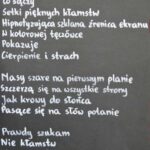 co sączy
Setki pięknych kłamstw
Hipnotyzująca szklana źrenica ekranu
W kolorowej tęczówce
Pokazuje
Cierpienie i strach
Masy szare na pierwszym planie
Szczerzą się na wszystkie strony
Jak krowy do słońca
Pasące się na słów polanie
Prawdy szukam
Nie kłamstw